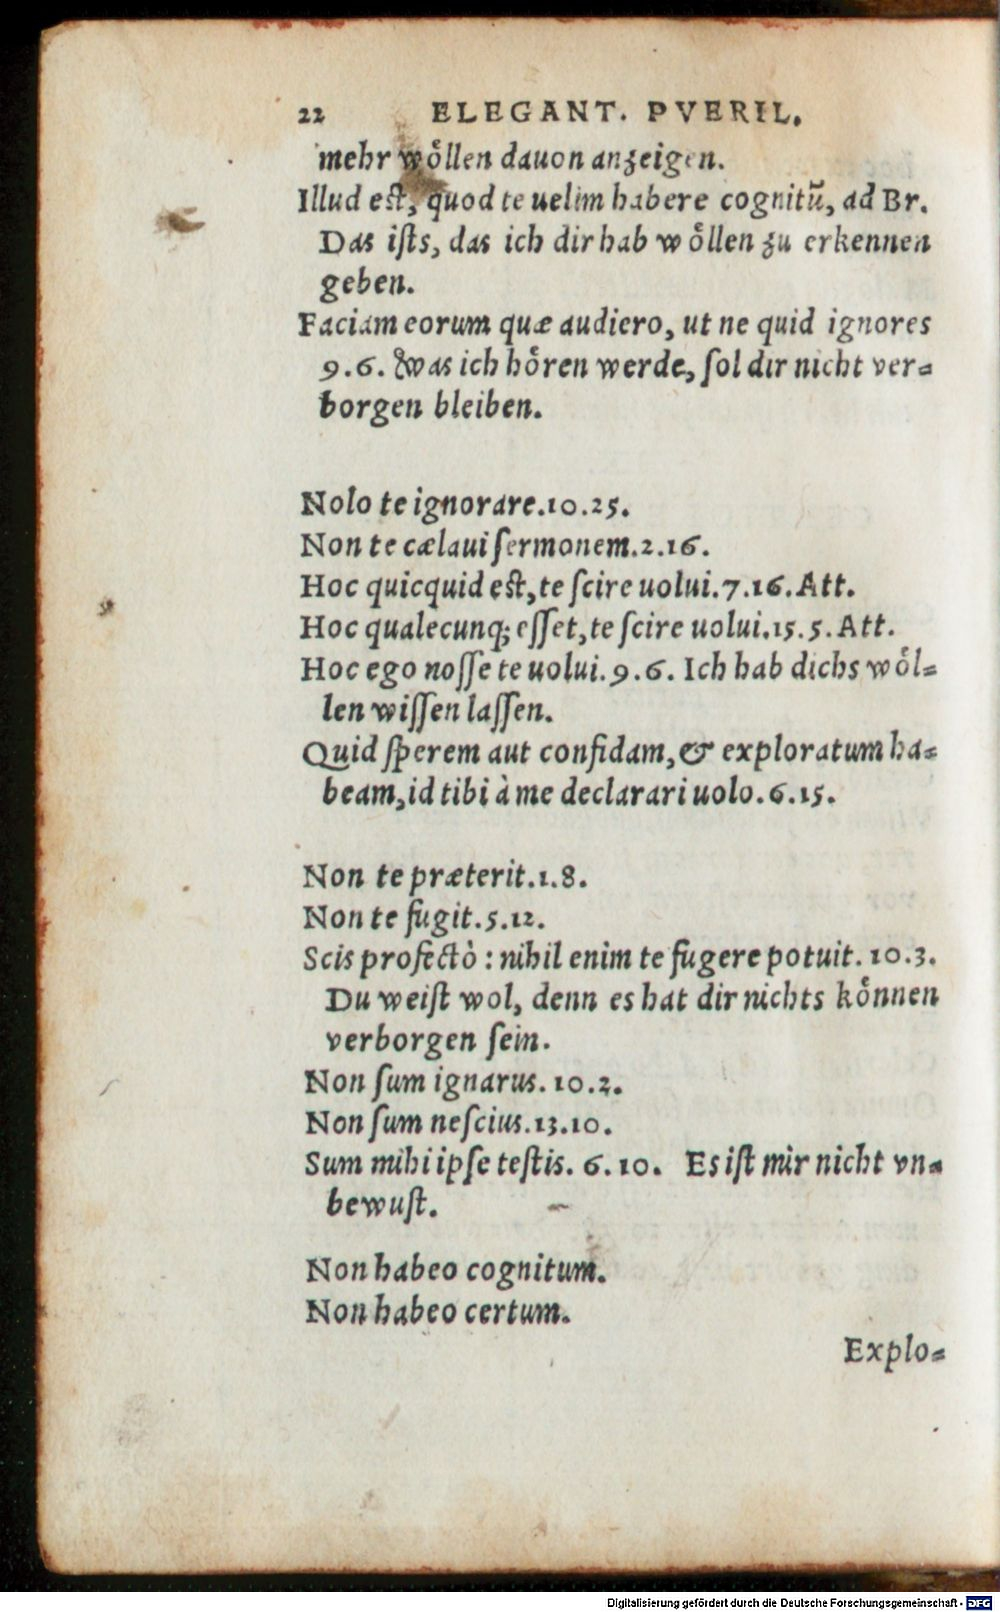 22 ELEGANT. PVERIL.
mehr woͤllen dauon anzeigen.
Illud eſt, quod te uelim habere cognitũ, ad Br.
Das iſts, das ich dir hab woͤllen zu erkennen
geben.
Faciam eorum quæ audiero, ut ne quid ignores
9.6. Was ich hoͤren werde, ſol dir nicht ver=
borgen bleiben.
Nolo te ignorare.10.25.
Non te cælaui ſermonem.2.16.
Hoc quicquid eſt, te ſcire uolui.7.16.Att.
Hoc qualecunq; eſſet, te ſcire uolui.15.5.Att.
Hoc ego noſſe te uolui.9.6. Ich hab dichs woͤl=
len wiſſen laſſen.
Quid ſperem aut confidam, & exploratum ha=
beam, id tibi à me declarari uolo.6.15.
Non te præterit.1.8.
Non te fugit.5.12.
Scis profectò: nihil enim te fugere potuit. 10.3.
Du weiſt wol, denn es hat dir nichts koͤnnen
verborgen ſein.
Non ſum ignarus. 10.2.
Non ſum neſcius.13.10.
Sum mihi ipſe teſtis. 6.10. Es iſt mir nicht vn=
bewuſt.
Non habeo cognitum.
Non habeo certum.
Explo=
Digitalisierung gefördert durch die Deutsche Forschungsgemeinschaft - DFG